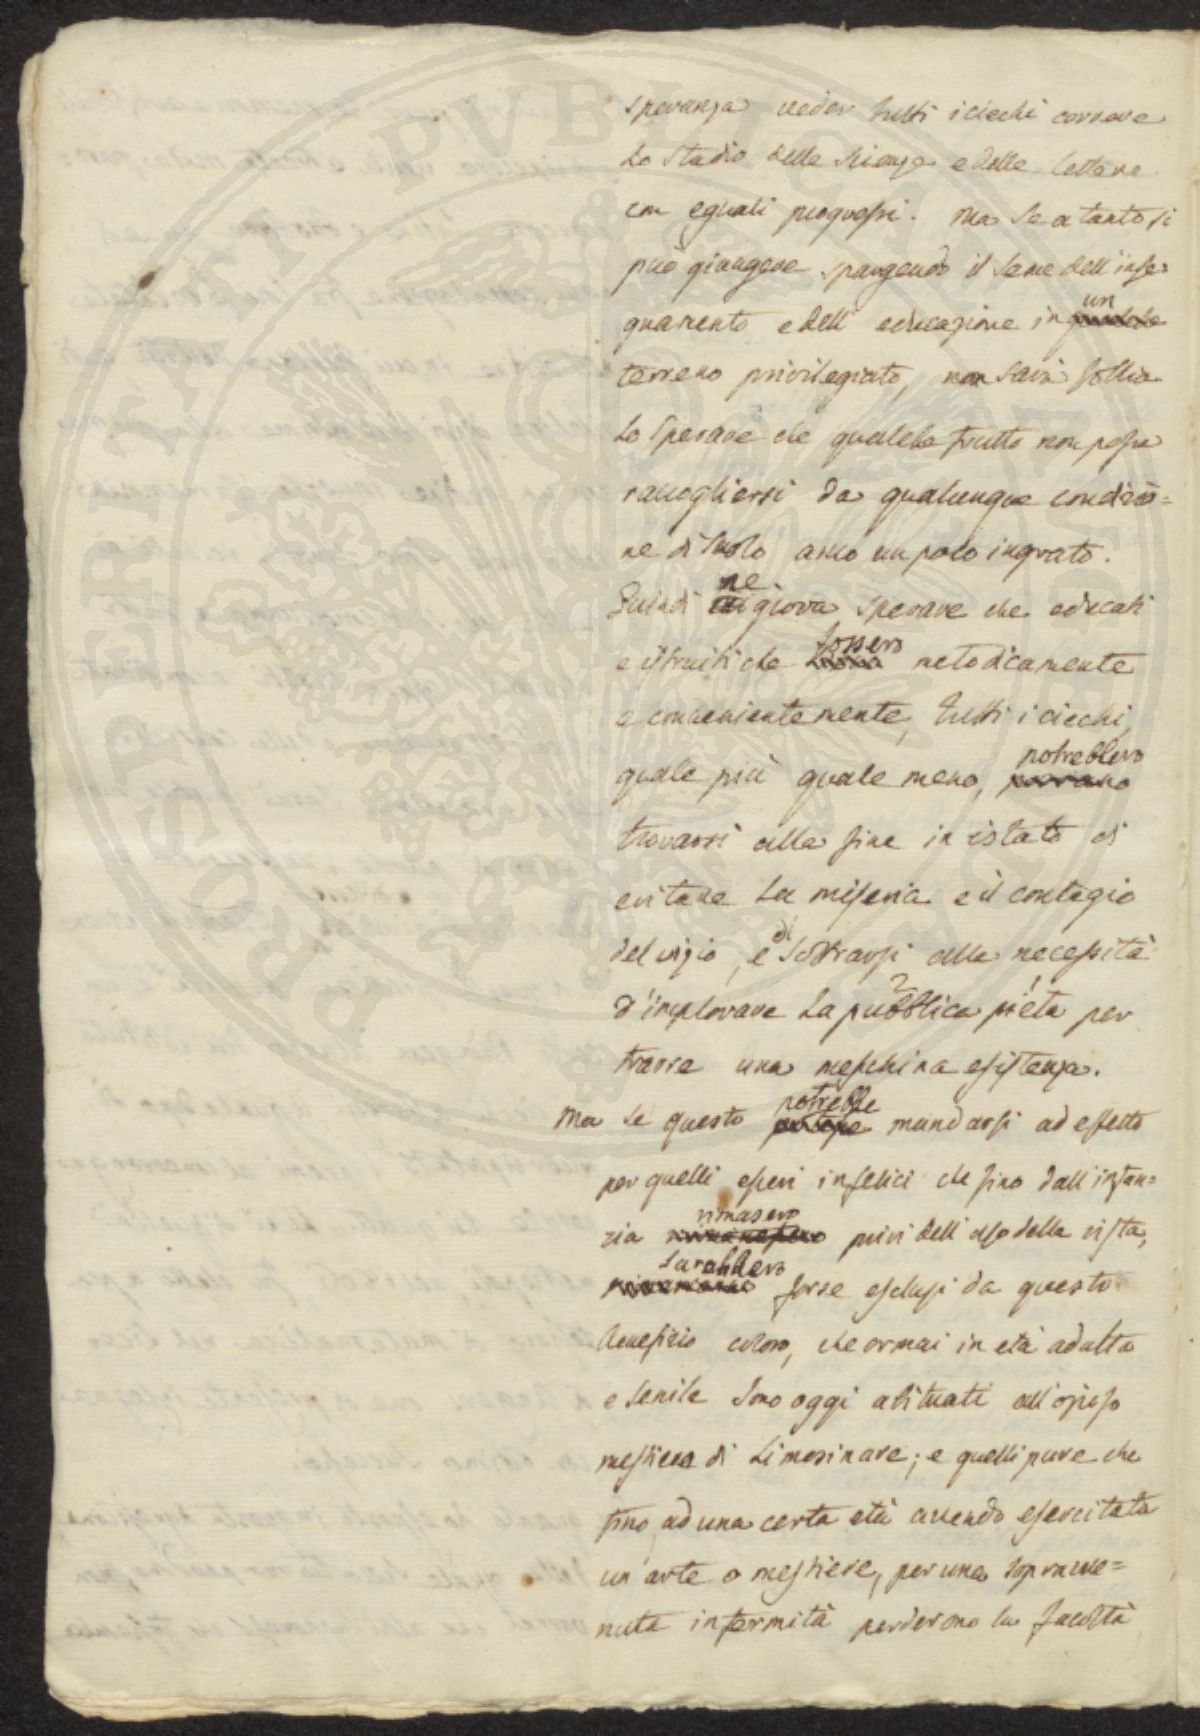 speranza veder tutti i ciechi correre
lo stadio delle scienze e delle lettere
con eguali progressi. Ma se a tanto si
può giungere spargendo il seme dell'inse=
gnamento e dell'educazione in un
terreno privilegiato, non sarà follia
lo sperare che qualche frutto non possa
raccogliersi da qualunque condizio=
ne di suolo anco un poco ingrato.
Quindi ne giova sperare che educati
e istruiti che fossero metodicamente
e convenientemente, tutti i ciechi,
quale più quale meno, potrebbero
trovarsi alla fine in istato di
evitare la miseria e il contagio
del vizio, e di sottrarsi alla necessità
d'implorare la pubblica pietà per
trarre una meschina esistenza.
Ma se questo potrebbe mandarsi ad effetto
per quelli esseri infelici che fino dall'infan=
zia rimasero privi dell'uso della vista,
sarebbero forse esclusi da questo
benefizio coloro, che ormai in età adulta
e senile sono oggi abituati all'ozioso
mestiere di limosinare; e quelli pure che
fino ad una certa età avendo esercitata
un'arte o mestiere, per una sopravve=
nuta infermità perderono la facoltà
PROSPERITATI PVBLICAE